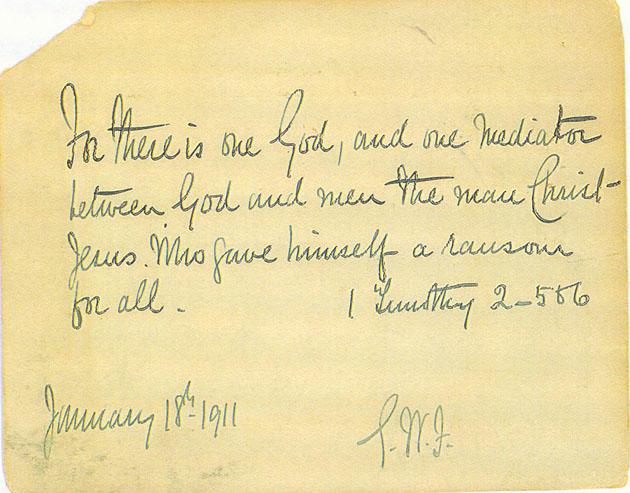 For there is one God, and one mediator
between God and men the man Christ
Jesus. Who gave himself a ransom
for all. 1 Timothy 2-5&6
January 18th 1911
G.W.F.